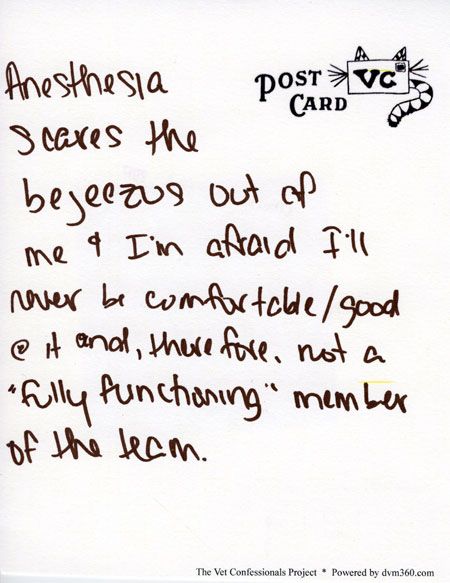 POST CARD
VC
Anesthesia
scares the
bejeezus out of
me & I'm afraid I'll
never be comfortable/good
@ it and, therefore, not a
"fully functioning" member
of the team.
The Vet Confessionals Project * Powered by dvm360.com